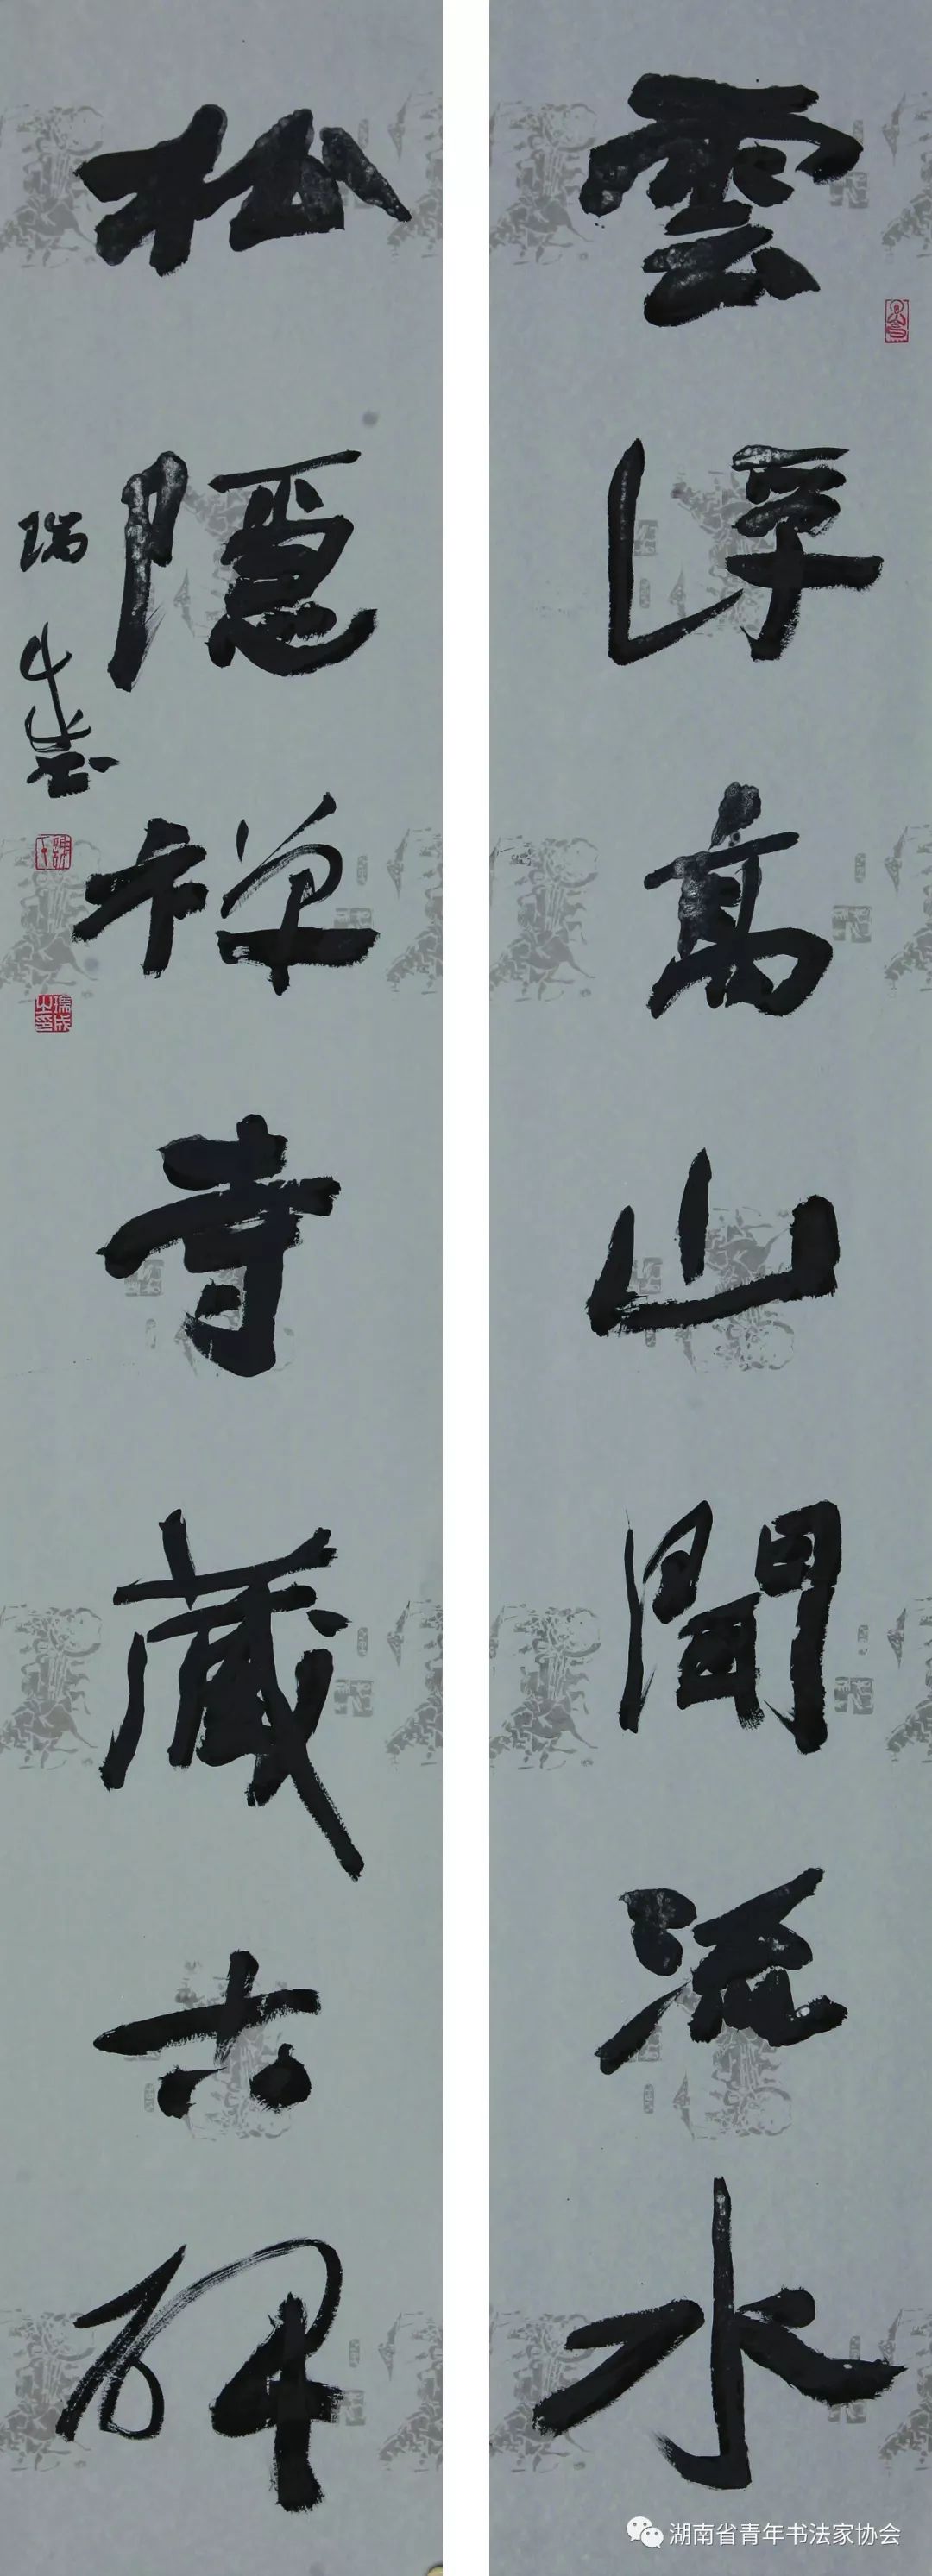 雲浮高山聞流水
松隱禅寺藏古碑
瑞
湖南省青年书法家协会